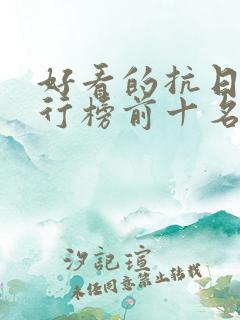 好看的抗日
行榜前十名
汐記瑄
未经同意禁止转载